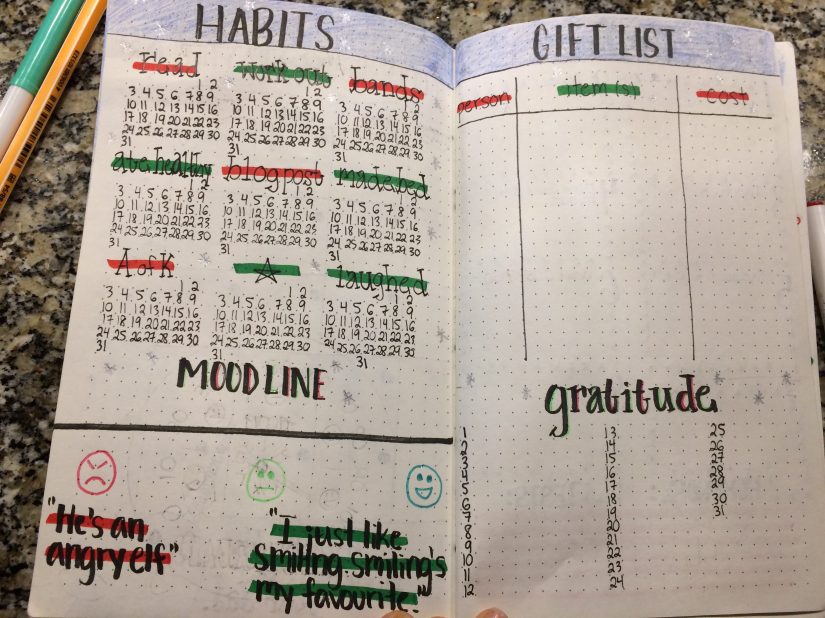 HABITS
read
1 2
3 4 5 6 7 8 9
10 11 12 13 14 15 16
17 18 19 20 21 22 23
24 25 26 27 28 29 30
31
workout
1 2
3 4 5 6 7 8 9
10 11 12 13 14 15 16
17 18 19 20 21 22 23
24 25 26 27 28 29 30
31
bands
1 2
3 4 5 6 7 8 9
10 11 12 13 14 15 16
17 18 19 20 21 22 23
24 25 26 27 28 29 30
31
ate healthy
1 2
3 4 5 6 7 8 9
10 11 12 13 14 15 16
17 18 19 20 21 22 23
24 25 26 27 28 29 30
31
blog post
1 2
3 4 5 6 7 8 9
10 11 12 13 14 15 16
17 18 19 20 21 22 23
24 25 26 27 28 29 30
31
made bed
1 2
3 4 5 6 7 8 9
10 11 12 13 14 15 16
17 18 19 20 21 22 23
24 25 26 27 28 29 30
31
A of K
1 2
3 4 5 6 7 8 9
10 11 12 13 14 15 16
17 18 19 20 21 22 23
24 25 26 27 28 29 30
31
1 2
3 4 5 6 7 8 9
10 11 12 13 14 15 16
17 18 19 20 21 22 23
24 25 26 27 28 29 30
31
laughed
1 2
3 4 5 6 7 8 9
10 11 12 13 14 15 16
17 18 19 20 21 22 23
24 25 26 27 28 29 30
31
MOOD LINE
"He's an
angry elf"
"I just like
smiling smiling's
my favourite."
GIFT LIST
person item(s) cost
gratitude
1
2
3
4
5
6
7
8
9
10
11
12
13
14
15
16
17
18
19
20
21
22
23
24
25
26
27
28
29
30
31